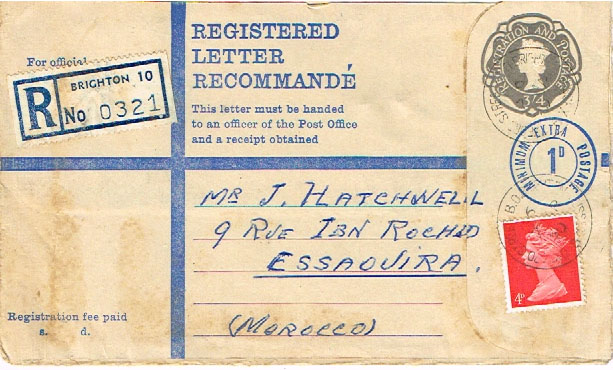 REGISTERED
LETTER
RECOMMANDÉ
This letter must be handed
to an officer of the Post Office
and a receipt obtained
For official
R
BRIGHTON 10
No 0321
REGISTRATION AND POSTAGE
3/4
MINIMUM EXTRA POSTAGE
1D
4P
MR J. HATCHWELL
9 RUE IBN ROCHD
ESSAOUIRA.
(MOROCCO)
Registration fee paid
s. d.